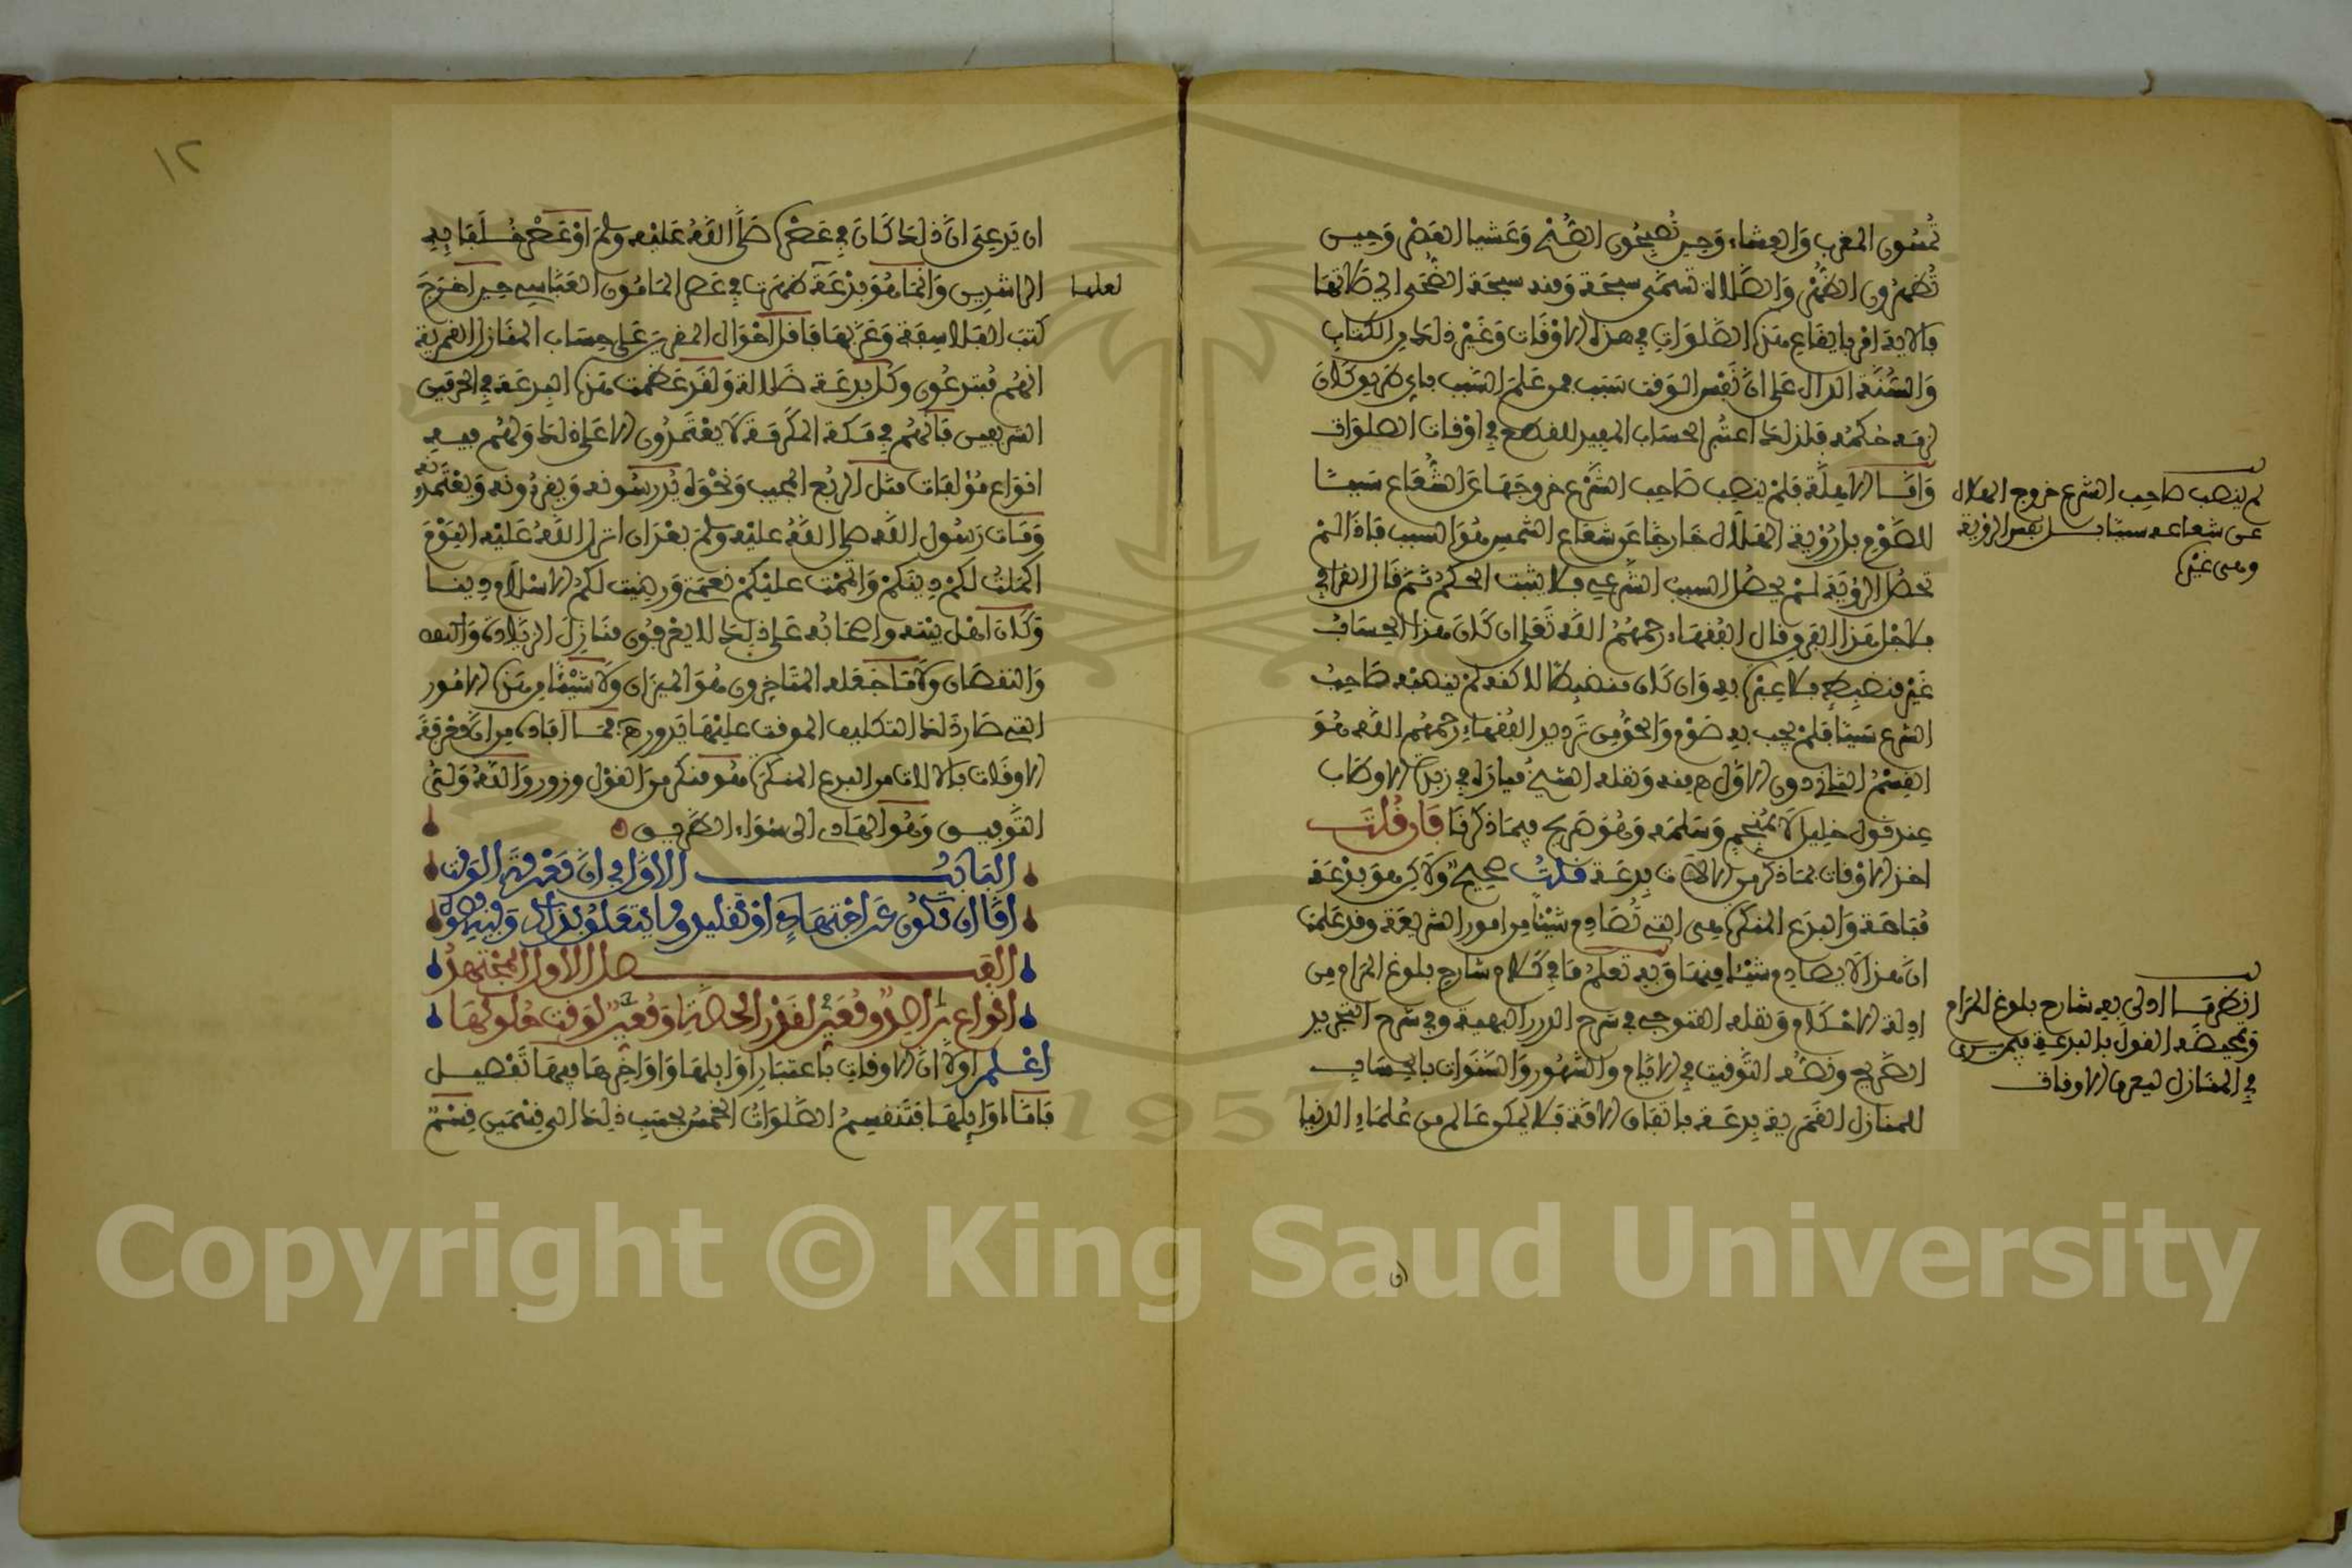 تمسون المغرب والعشاء وحين تصبحون الصبح وعشيا العصر وحين
تظهرون الظهر والصلاة تسمى سبحة ومنه سبحة الضحى اي صلاتها
فالاية امر بايقاع هذه الصلوات في هذه الاوقات وغير ذلك من الكتاب
والسنة الدال على ان نفس الوقت سبب فمن علم السبب باي طريق كان
لزمه حكمه فلذلك اعتبر الحساب المفيد للقطع في اوقات الصلوات
واما الاهلة فلم ينصب صاحب الشرع خروجها عن الشعاع سببا
للصوم بل رؤية الهلال خارجا عن شعاع الشمس هو السبب فاذا لم
تحصل الرؤية لم يحصل السبب الشرعي فلا يثبت الحكم ثم قال القرافي
فلاجل هذا الفرق قال الفقهاء رحمهم الله تعلى ان كان هذا الحساب
غير منضبط فلا عبرة به وان كان منضبطا لاكنه لم ينصبه صاحب
الشرع سببا فلم يجب به صوم والحق من ترديد الفقهاء رحمهم الله هو
القسم الثاني دون الاول منه ونقله الشيخ ميارة في زبدة الاوطاب
عند قول خليل لا بمنجم وسلمه وهو صريح فيما ذكرنا فان قلت
اخذ الاوقات بما ذكر من الالات بدعة قلت صحيح ولاكن هو بدعة
مباحة والبدع المنكرة هي التي تصادم شيئا من امور الشريعة وقد علمت
ان هذا لا يصادم شيئا منها وبه تعلم ما في كلام شارح بلوغ المرام من
ادلة الاحكام ونقله الفتوحي في شرح الدرر البهية وفي شرح التجريد
الصريح ونصه التوقيت في الايام والشهور والسنوات بالحساب
للمنازل القمرية بدعة باتفاق الامة فلا يمكن عالم من علماء الدنيا
لم ينصب صاحب الشرع خروج الهلال
عن شعاعه سببا بل نفس الرؤية
وهي غير
انظر ما ادلى به شارح بلوغ المرام
القول بالبدعة
في المنازل ليعرفها الاوقات
١٢
ان يدعي ان ذلك كان في عصره صلى الله عليه وسلم او عصر خلفائه
الراشدين وانما هو بدعة ظهرت في عصر المامون العباسي حين اخرج
لعلها
كتب الفلاسفة وعربها فاقل احوال المفرين على حساب المنازل القمرية
انهم مبتدعون وكل بدعة ضلالة ولقد عظمت هذه البدعة في الحرمين
الشريفين فانهم في مكة المكرمة لا يعتمدون الا على ذلك ولهم فيه
انواع مؤلفات مثل الربع المجيب ونحوه يدرسونه ويقرءونه ويعتمدونه
ومات رسول الله صلى الله عليه وسلم بعد ان انزل الله عليه اليوم
اكملت لكم دينكم واتممت عليكم نعمتي ورضيت لكم الاسلام دينا
وكان اهل بيته واصحابه على ذلك لا يعرفون منازل الزيادة
والنقصان ولا ما جعله المتاخرون هو الميزان ولا شيئا من هذه الامور
التي صار ذلك التكليف الموقت عليها يدور فما افاده من ان معرفة
الاوقات بالالات من البدع المنكرة هو منكر من القول وزور والله ولي
التوفيق وهو الهادي الى سواء الطريق
الباب الاول في ان معرفة الوقت
اما ان تكون عن اجتهاد او تقليد وما يتعلق بذلك وفيه فصول
الفصل الاول المجتهد
انواع
اعلم اولا ان الاوقات باعتبار اوايلها واواخرها فيها تفصيل
فاما اوايلها فتنقسم الصلوات الخمس بحسب ذلك الى قسمين قسم
Copyright © King Saud University
1957